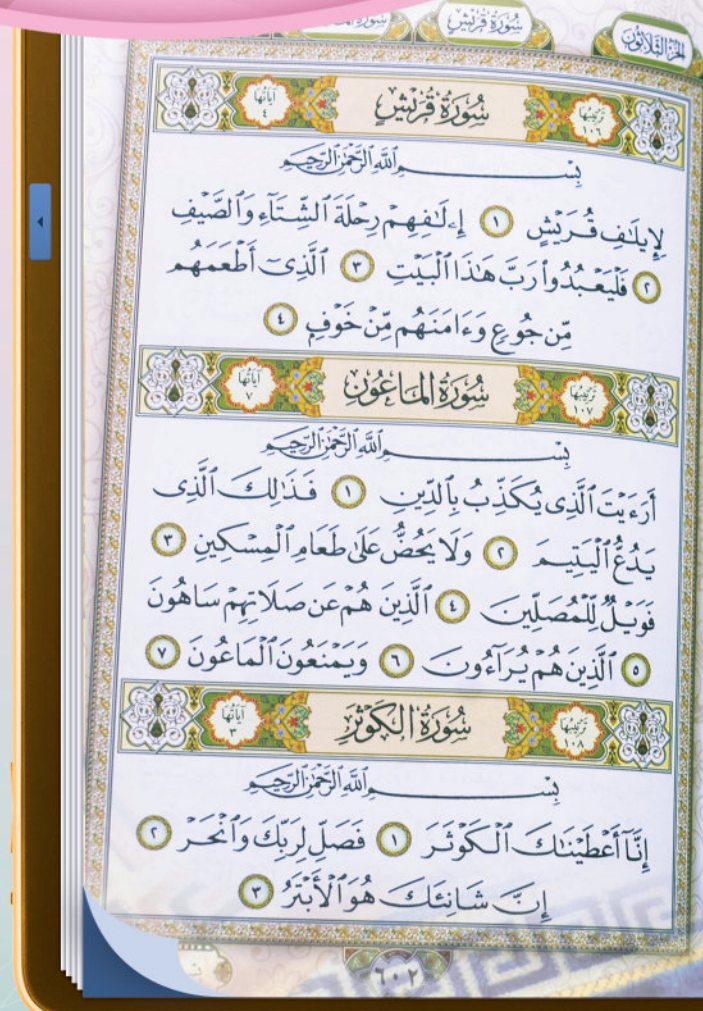 الجُزْءُ الثَّلَاثُونَ سُورَةُ قُرَيْشٍ
تَرْتِيبُهَا ١٠٦ سُورَةُ قُرَيْشٍ آيَاتُهَا ٤
بِسْمِ ٱللَّهِ ٱلرَّحْمَٰنِ ٱلرَّحِيمِ
لِإِيلَٰفِ قُرَيْشٍ ١ إِۦلَٰفِهِمْ رِحْلَةَ ٱلشِّتَآءِ وَٱلصَّيْفِ
٢ فَلْيَعْبُدُوا۟ رَبَّ هَٰذَا ٱلْبَيْتِ ٣ ٱلَّذِىٓ أَطْعَمَهُم
مِّن جُوعٍ وَءَامَنَهُم مِّنْ خَوْفٍ ٤
تَرْتِيبُهَا ١٠٧ سُورَةُ المَاعُونِ آيَاتُهَا ٧
بِسْمِ ٱللَّهِ ٱلرَّحْمَٰنِ ٱلرَّحِيمِ
أَرَءَيْتَ ٱلَّذِى يُكَذِّبُ بِٱلدِّينِ ١ فَذَٰلِكَ ٱلَّذِى
يَدُعُّ ٱلْيَتِيمَ ٢ وَلَا يَحُضُّ عَلَىٰ طَعَامِ ٱلْمِسْكِينِ ٣
فَوَيْلٌ لِّلْمُصَلِّينَ ٤ ٱلَّذِينَ هُمْ عَن صَلَاتِهِمْ سَاهُونَ
٥ ٱلَّذِينَ هُمْ يُرَآءُونَ ٦ وَيَمْنَعُونَ ٱلْمَاعُونَ ٧
تَرْتِيبُهَا ١٠٨ سُورَةُ الكَوْثَرِ آيَاتُهَا ٣
بِسْمِ ٱللَّهِ ٱلرَّحْمَٰنِ ٱلرَّحِيمِ
إِنَّآ أَعْطَيْنَٰكَ ٱلْكَوْثَرَ ١ فَصَلِّ لِرَبِّكَ وَٱنْحَرْ ٢
إِنَّ شَانِئَكَ هُوَ ٱلْأَبْتَرُ ٣
٦٠٢